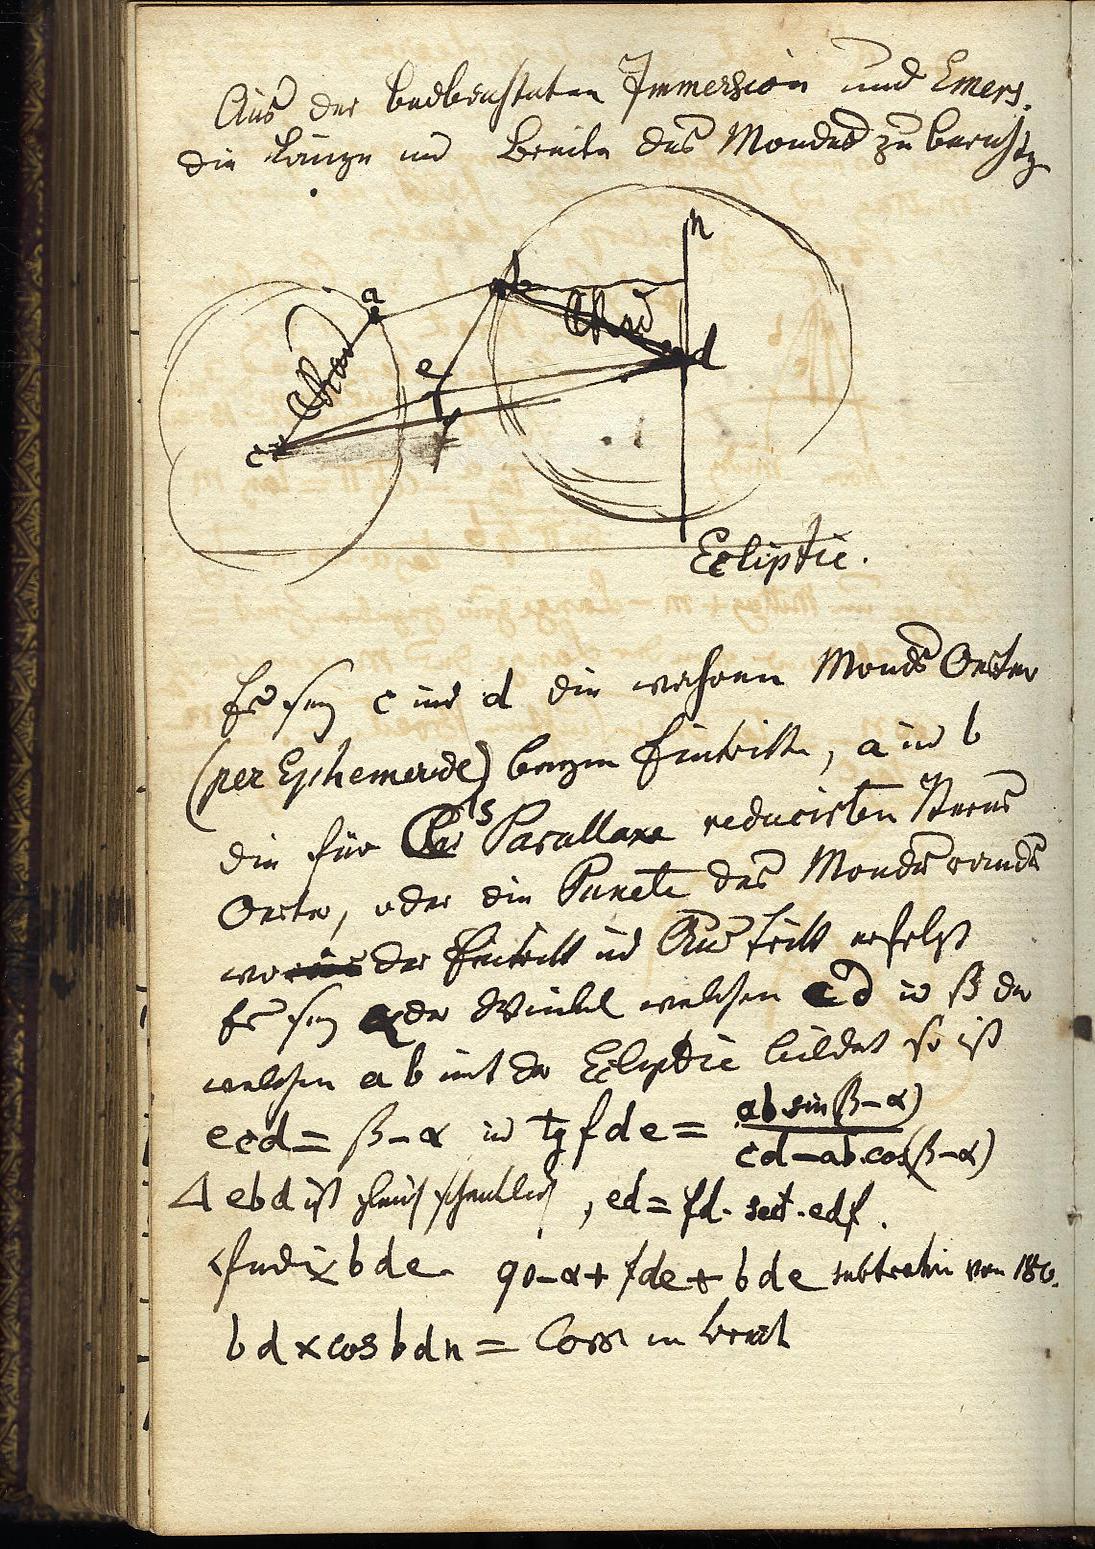 Aus der beobachteten Immersion und Emers.
die Länge und Breite des Mondes zu berichtg
n
a
b
Rad
Rad
d
e
f
c
Ecliptic.
Es sey c und d die wahren Monds Oerter
(per Ephemeride) beym Eintritte, a und b
die für Parallaxe reducirten Stern
Oerter, oder die Puncte des Mondsrandes
wo der Eintritt und Austritt erfolgt
Es sey α der Winkel welchen cd und β der
welchen ab mit der Ecliptic bildet so ist
ecd = β-α und tg fde = ab sin(β-α) / cd-ab.cos(β-α)
Δ ebd ist gleichschenklich, ed = fd. sect. edf.
bde 90-α+fde+bde subtrahir von 180.
bd x cos bdn = Corr in breit